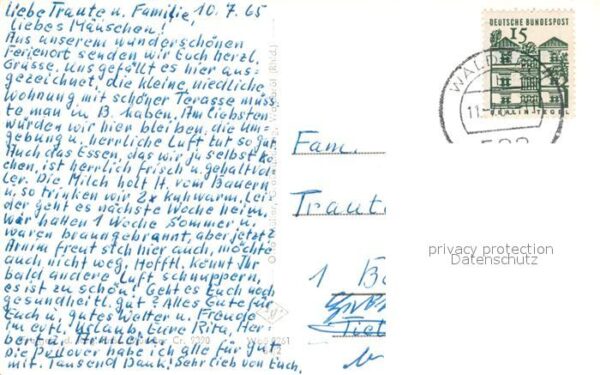 Liebe Traute u. Familie, 10.7.65
liebes Mäuschen!
Aus unserem wunderschönen
Ferienort senden wir Euch herzl.
Grüsse. Uns gefällt es hier aus-
gezeichnet, die kleine niedliche
Wohnung mit schöner Terasse müss
te man in B. haben. Am liebsten
würden wir hier bleiben, die Um-
gebung u. herrliche Luft tut so gut
Auch das Essen, das wir ja selbst ko
chen, ist herrlich frisch u. gehaltvol
ler. Die Milch holt H. vom Bauern
u. so trinken wir 2x kuhwarm. Lei
der geht es nächste Woche heim,
wir hatten 1 Woche Sommer u.
waren braungebrannt, aber jetzt?
Armin freut sich hier auch, möchte
auch nicht weg. Hofftl. könnt Ihr
bald andere Luft schnuppern,
es ist zu schön! Geht es Euch noch
gesundheitl. gut? Alles Gute für
Euch u. gutes Wetter u. Freude
im evtl. Urlaub, Eure Rita, Her-
bert u.
Die Pullover habe ich alle für gut
mit. Tausend Dank! Sehr lieb von Euch.
DEUTSCHE BUNDESPOST
15
BERLIN TEGEL
WALD
11.
Fam.
Traute
1
privacy protection
Datenschutz
Cr. 9220